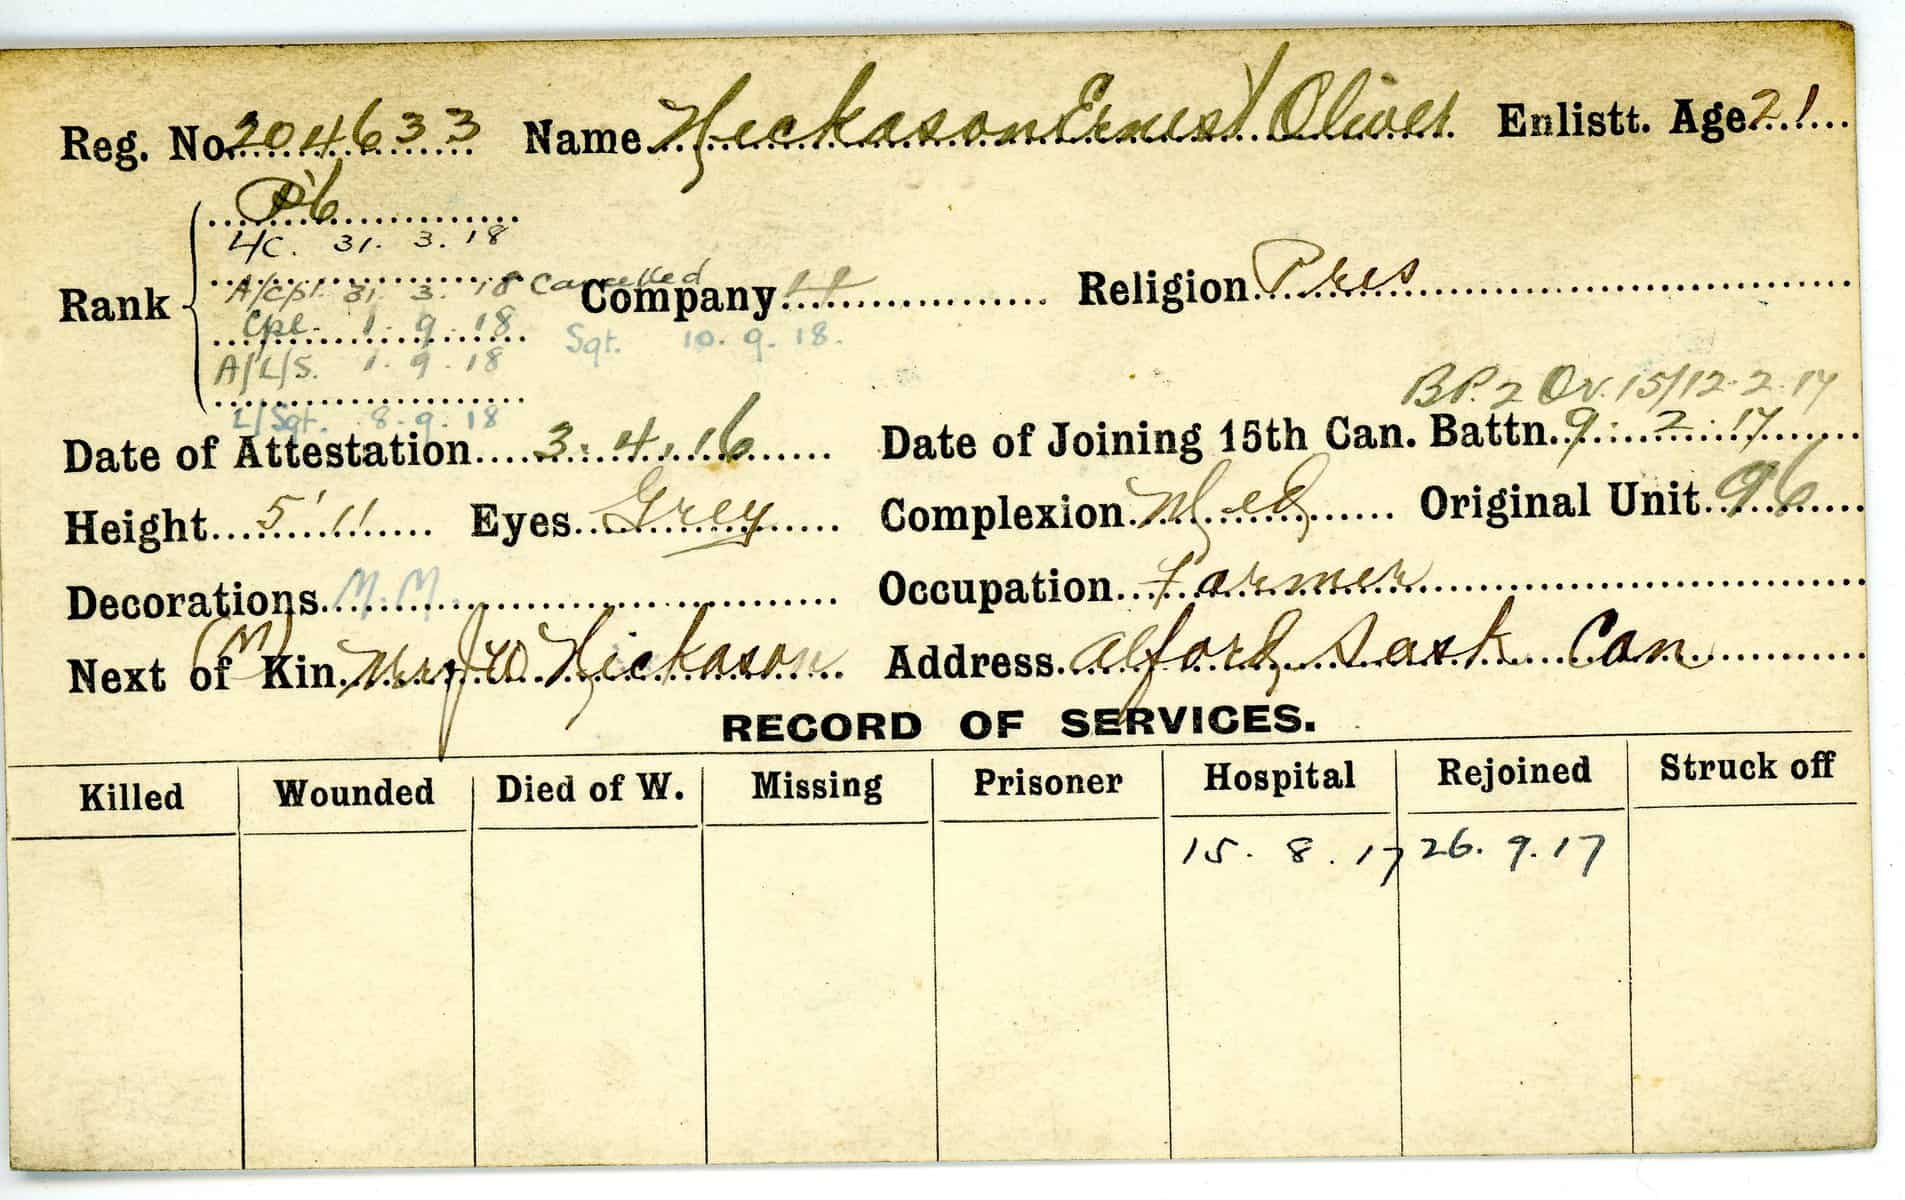 Reg. No. 204633 Name Hickason Ernest Oliver Enlistt. Age. 21
Rank
L/C. 31. 3. 18
A/Cpl. 31. 3. 18 Cancelled
Company Religion Pres
Cpl. 1. 9. 18
Sgt. 10. 9. 18.
A/L/S. 1. 9. 18
L/Sgt. 8. 9. 18
15/12.2.17
Date of Attestation 3.4.16 Date of Joining 15th Can. Battn. 9. 2. 17
Height 5' 11 Eyes Grey Complexion Med Original Unit 96
Decorations M.M. Occupation Farmer
(M)
Next of Kin. Mrs J W Hickason Address. Alford Sask Can
RECORD OF SERVICES.
Killed Wounded Died of W. Missing Prisoner Hospital Rejoined Struck off
15. 8. 17 26. 9. 17